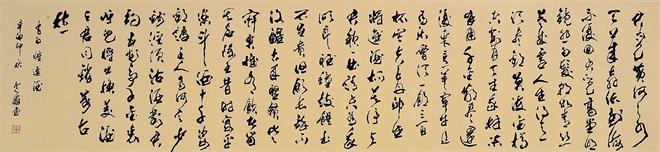 君不見黃河之
水天上來奔流到海
不復回君不見高堂明
鏡悲白髮朝如青絲
暮成雪人生得意
須盡歡莫使金樽
空對月天生我材必
有用千金散盡還
復來烹羊宰牛且
為樂會須一飲三百
杯岑夫子丹丘生
將進酒杯莫停與
君歌一曲請君為我
傾耳聽鐘鼓饌玉
不足貴但願長醉不
復醒古來聖賢皆
寂寞惟有飲者留
其名陳王昔時宴平
樂斗酒十千恣
歡謔主人何為言少
錢徑須沽取對君
酌五花馬千金裘
呼兒將出換美酒
與爾同銷萬古
愁
李白將進酒
辛卯仲秋 書